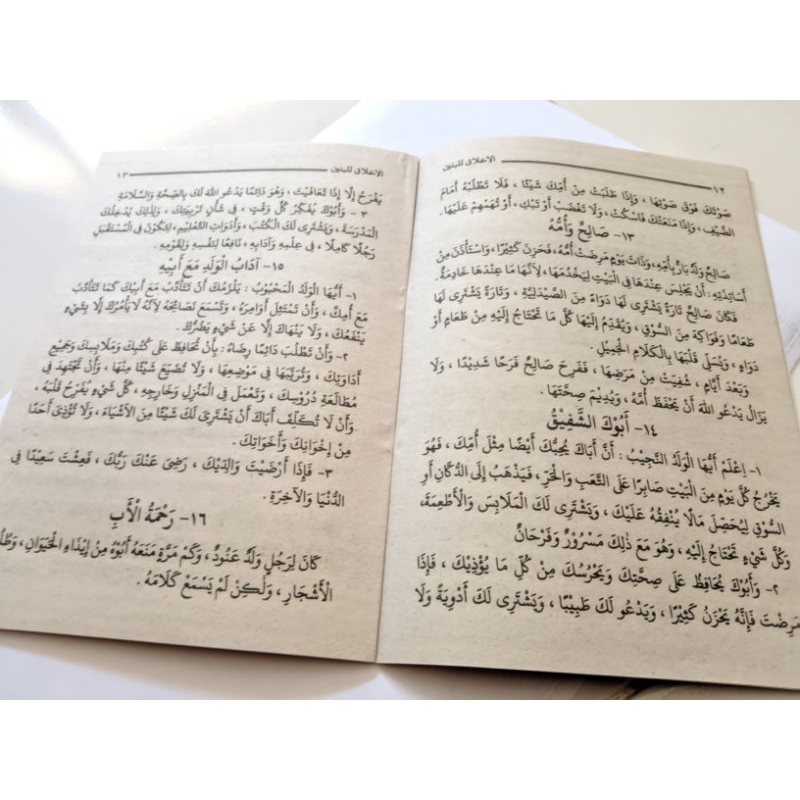 ١٢ الاخلاق للبنين
صَوْتَكَ فَوْقَ صَوْتِهَا ، وَإِذَا طَلَبْتَ مِنْ أُمِّكَ شَيْئًا ، فَلَا تَطْلُبْهُ أَمَامَ
الضَّيْفِ ، وَإِذَا مَنَعَتْكَ فَاسْكُتْ ، وَلَا تَغْضَبْ أَوْ تَبْكِ ، أَوْ تُهَمْهِمْ عَلَيْهَا .
١٣- صَالِحٌ وَأُمُّهُ
صَالِحٌ وَلَدٌ بَارٌّ بِأُمِّهِ ، وَذَاتَ يَوْمٍ مَرِضَتْ أُمُّهُ ، فَحَزِنَ كَثِيْرًا ، وَاسْتَأْذَنَ مِنْ
أَسَاتِذَتِهِ : أَنْ يَجْلِسَ عِنْدَهَا فِى الْبَيْتِ لِيَخْدُمَهَا ، لِأَنَّهَا مَا عِنْدَهَا خَادِمَةٌ .
فَكَانَ صَالِحٌ تَارَةً يَشْتَرِى لَهَا دَوَاءً مِنَ الصَّيْدَلِيَّةِ ، وَتَارَةً يَشْتَرِى لَهَا
طَعَامًا وَفَوَاكِهَ مِنَ السُّوْقِ ، وَيُقَدِّمُ إِلَيْهَا كُلَّ مَا تَحْتَاجُ إِلَيْهِ مِنْ طَعَامٍ أَوْ
دَوَاءٍ ، وَيُسَلِّى قَلْبَهَا بِالْكَلَامِ الْجَمِيْلِ .
وَبَعْدَ أَيَّامٍ ، شُفِيَتْ مِنْ مَرَضِهَا ، فَفَرِحَ صَالِحٌ فَرَحًا شَدِيْدًا ، وَلَا
يَزَالُ يَدْعُو اللهَ أَنْ يَحْفَظَ أُمَّهُ ، وَيُدِيْمَ صِحَّتَهَا .
١٤- أَبُوْكَ الشَّفِيْقُ
١- اِعْلَمْ أَيُّهَا الْوَلَدُ النَّجِيْبُ : أَنَّ أَبَاكَ يُحِبُّكَ أَيْضًا مِثْلَ أُمِّكَ ، فَهُوَ
يَخْرُجُ كُلَّ يَوْمٍ مِنَ الْبَيْتِ صَابِرًا عَلَى التَّعَبِ وَالْحَرِّ ، فَيَذْهَبُ إِلَى الدُّكَّانِ أَوِ
السُّوْقِ لِيُحَصِّلَ مَالًا يُنْفِقُهُ عَلَيْكَ ، وَيَشْتَرِى لَكَ الْمَلَابِسَ وَالْأَطْعِمَةَ ،
وَكُلَّ شَيْءٍ تَحْتَاجُ إِلَيْهِ ، وَهُوَ مَعَ ذٰلِكَ مَسْرُوْرٌ وَفَرْحَانٌ
٢- وَأَبُوْكَ يُحَافِظُ عَلَى صِحَّتِكَ وَيَحْرُسُكَ مِنْ كُلِّ مَا يُؤْذِيْكَ ، فَإِذَا
مَرِضْتَ فَإِنَّهُ يَحْزَنُ كَثِيْرًا ، وَيَدْعُو لَكَ طَبِيْبًا ، وَيَشْتَرِى لَكَ أَدْوِيَةً وَلَا
الاخلاق للبنين ١٣
يَفْرَحُ إِلَّا إِذَا تَعَافَيْتَ ، وَهُوَ دَائِمًا يَدْعُو اللهَ لَكَ بِالصِّحَّةِ وَالسَّلَامَةِ
٣ - وَأَبُوْكَ يُفَكِّرُ كُلَّ وَقْتٍ ، فِى شَأْنِ تَرْبِيَتِكَ ، وَلِذٰلِكَ يُدْخِلُكَ
الْمَدْرَسَةَ ، وَيَشْتَرِى لَكَ الْكُتُبَ ، وَأَدَوَاتِ التَّعْلِيْمِ ، لِتَكُوْنَ فِى الْمُسْتَقْبَلِ
رَجُلًا كَامِلًا ، فِى عِلْمِهِ وَآدَابِهِ ، نَافِعًا لِنَفْسِهِ وَلِقَوْمِهِ .
١٥- آدَابُ الْوَلَدِ مَعَ أَبِيْهِ
١- أَيُّهَا الْوَلَدُ الْمَحْبُوْبُ : يَلْزَمُكَ أَنْ تَتَأَدَّبَ مَعَ أَبِيْكَ كَمَا تَتَأَدَّبُ
مَعَ أُمِّكَ ، وَأَنْ تَمْتَثِلَ أَوَامِرَهُ ، وَتَسْمَعَ نَصَائِحَهُ لِأَنَّهُ لَا يَأْمُرُكَ إِلَّا بِشَيْءٍ
يَنْفَعُكَ ، وَلَا يَنْهَاكَ إِلَّا عَنْ شَيْءٍ يَضُرُّكَ .
٢- وَأَنْ تَطْلُبَ دَائِمًا رِضَاهُ : بِأَنْ تُحَافِظَ عَلَى كُتُبِكَ وَمَلَابِسِكَ وَجَمِيْعِ
أَدَاوَتِكَ ، وَتُرَتِّبَهَا فِى مَوْضِعِهَا ، وَلَا تُضَيِّعَ شَيْئًا مِنْهَا ، وَأَنْ تَجْتَهِدَ فِى
مُطَالَعَةِ دُرُوْسِكَ ، وَتَعْمَلَ فِى الْمَنْزِلِ وَخَارِجِهِ ، كُلَّ شَيْءٍ يُفْرِحُ قَلْبَهُ ،
وَأَنْ لَا تُكَلِّفَ أَبَاكَ أَنْ يَشْتَرِىَ لَكَ شَيْئًا مِنَ الْأَشْيَاءِ ، وَلَا تُؤْذِىَ أَحَدًا
مِنْ إِخْوَانِكَ وَأَخَوَاتِكَ .
٣- فَإِذَا أَرْضَيْتَ وَالِدَيْكَ ، رَضِىَ عَنْكَ رَبُّكَ ، فَعِشْتَ سَعِيْدًا فِى
الدُّنْيَا وَالْآخِرَةِ .
١٦- رَحْمَةُ الْأَبِ
كَانَ لِرَجُلٍ وَلَدٌ عَنُوْدٌ ، وَكَمْ مَرَّةٍ مَنَعَهُ أَبُوْهُ مِنْ إِيْذَاءِ الْحَيَوَانِ ،
الْأَشْجَارِ ، وَلٰكِنْ لَمْ يَسْمَعْ كَلَامَهُ .